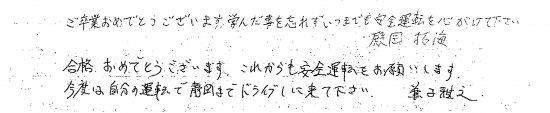 ご卒業おめでとうございます。学んだ事を忘れずいつまでも安全運転を心がけて下さい
拓海
合格おめでとうございます。これからも安全運転をお願いします。
今度は自分の運転で までドライブしに来て下さい。